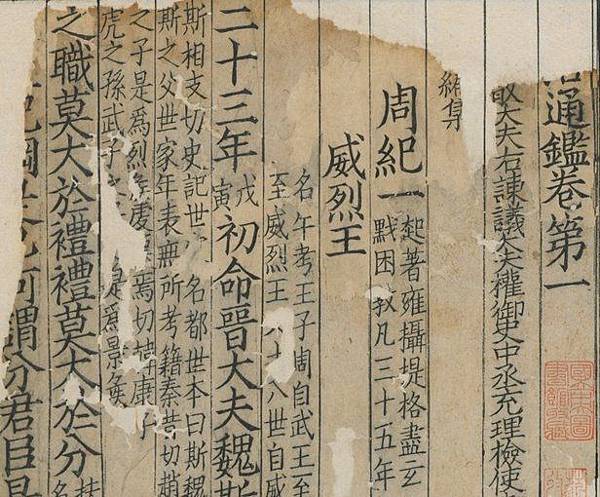 通鑑卷第一
大夫右諫議大夫權御史中丞充理檢使
編集
周紀一
起著雍攝提格盡玄
黓困敦凡三十五年
威烈王
名午考王子周自武王至
至威烈王十八世自威
二十三年
戊寅
初命晉大夫魏斯
斯相支切史記世名都世本曰斯
斯之父世家年表無所考籍秦昔切趙
之子是爲烈侯虔焉切韓康子
虎之孫武子是爲景侯
之職莫大於禮禮莫大於分
綱是也何謂分君臣是